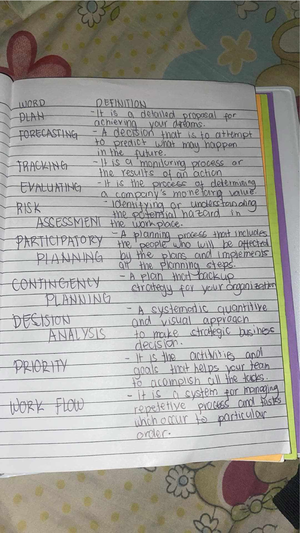 WORD DEFINITION
PLAN - It is a detailed proposal for
achieving your dreams.
FORECASTING - A decision that is to attempt
to predict what may happen
in the future.
TRACKING - It is a monitoring process or
the results of an action
EVALUATING - It is the process of determining
a company's monetary value
RISK - Identifying or understanding
the potential hazard in
ASSESSMENT the workplace.
PARTICIPATORY - A planning process that includes
the people who will be affected
PLANNING by the plans and implements
all the planning steps.
CONTINGENCY - A plan that backup
strategy for your organization
PLANNING
DECISION - A systematic quantitive
and visual approach
ANALYSIS to make strategic business
decision.
PRIORITY - It is the activities and
goals that helps your team
to acomplish all the tasks
WORK FLOW - It is a system for managing
repetetive process and tasks
which occur to particular
order.